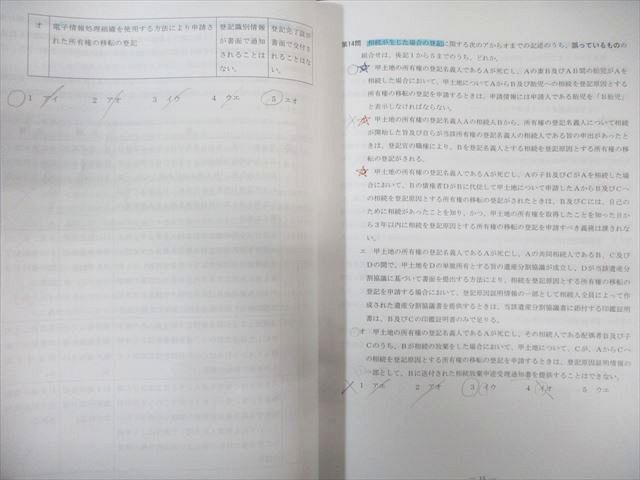 オ
電子情報処理組織を使用する方法により申請さ
れた所有権の移転の登記
登記識別情報
が書面で通知
されることは
ない。
登記完了証が
書面で交付さ
れることはな
い。
1 アイ 2 アオ 3 イウ 4 ウエ 5 エオ
第14問 相続が生じた場合の登記に関する次のアからオまでの記述のうち、誤っているものの
組合せは、後記1から5までのうち、どれか。
甲土地の所有権の登記名義人であるAが死亡し、Aの妻B及びAB間の胎児がAを
相続した場合において、甲土地についてAからB及び胎児への相続を登記原因とする
所有権の移転の登記を申請するときは、申請情報には申請人である胎児を「B胎児」
と表示しなければならない。
甲土地の所有権の登記名義人Aの相続人Bから、所有権の登記名義人について相続
が開始した旨及び自らが当該所有権の登記名義人の相続人である旨の申出があったと
きは、登記官の職権により、Bを登記名義人とする相続を登記原因とする所有権の移
転の登記がされる。
甲土地の所有権の登記名義人であるAが死亡し、Aの子B及びCがAを相続した場
合において、Bの債権者DがBに代位して甲土地について申請したAからB及びCへ
の相続を登記原因とする所有権の移転の登記がされたときは、B及びCには、自己の
ために相続があったことを知り、かつ、甲土地を取得したことを知った日か
ら3年以内に相続を登記原因とする所有権の移転の登記を申請すべき義務は課されな
い。
エ 甲土地の所有権の登記名義人であるAが死亡し、Aの共同相続人であるB、C及び
Dの間で、甲土地をDの単独所有とする旨の遺産分割協議が成立し、Dが当該遺産分
割協議に基づいて書面を提出する方法により、相続を登記原因とする所有権の移転の
登記を申請する場合において、登記原因証明情報の一部として相続人全員によって作
成された遺産分割協議書を提供するときは、当該遺産分割協議書に添付する印鑑証明
書は、B及びCの印鑑証明書のみで足りる。
オ 甲土地の所有権の登記名義人であるAが死亡し、その相続人である配偶者B及び子
Cのうち、Bが相続の放棄をした場合において、甲土地について、Cが、AからCへ
の相続を登記原因とする所有権の移転の登記を申請するときは、登記原因証明情報の
一部として、Bに送付された相続放棄申述受理通知書を提供することはできない。
1 アエ 2 アオ 3 イウ 4 イオ 5 ウエ